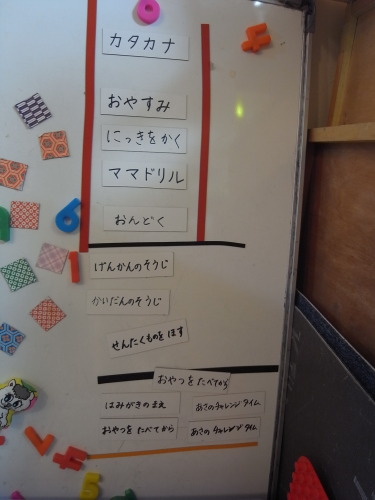 カタカナ
おやすみ
にっきをかく
ママドリル
おんどく
6
げんかんのそうじ
1
かいだんのそうじ
せんたくものをほす
おやつをたべてから
はみがきのまえ
あさのチャレンジタイム
おやつをたべてから
あさのチャレンジタイム